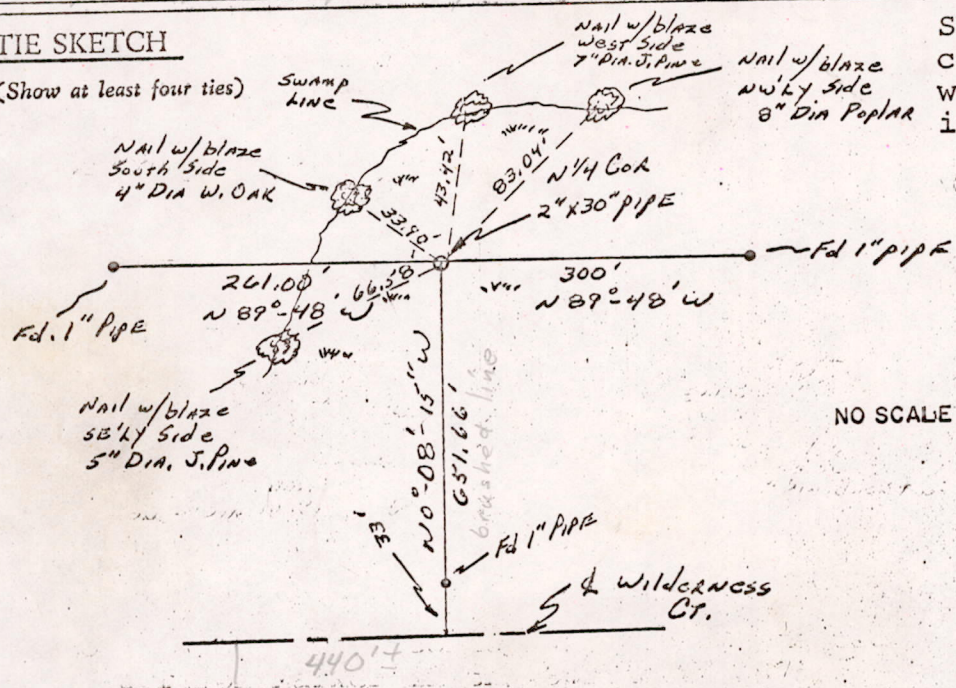 TIE SKETCH
(Show at least four ties)
Nail w/blaze
West Side
7" Dia. J. Pine
Nail w/blaze
NW'LY Side
8" Dia Poplar
Swamp
Line
Nail w/blaze
South Side
4" Dia W. Oak
43.42'
83.04'
33.90'
N 1/4 COR
2" X 30" PIPE
Fd 1" PIPE
261.00'
N 89°-48' W
66.58'
300'
N 89°-48' W
Fd. 1" PIPE
Nail w/blaze
SE'LY Side
5" DIA. J. Pine
N0°-08'-15" W
651.66'
brushed line
NO SCALE
33'
Fd 1" PIPE
℄ Wilderness
CT.
440'±